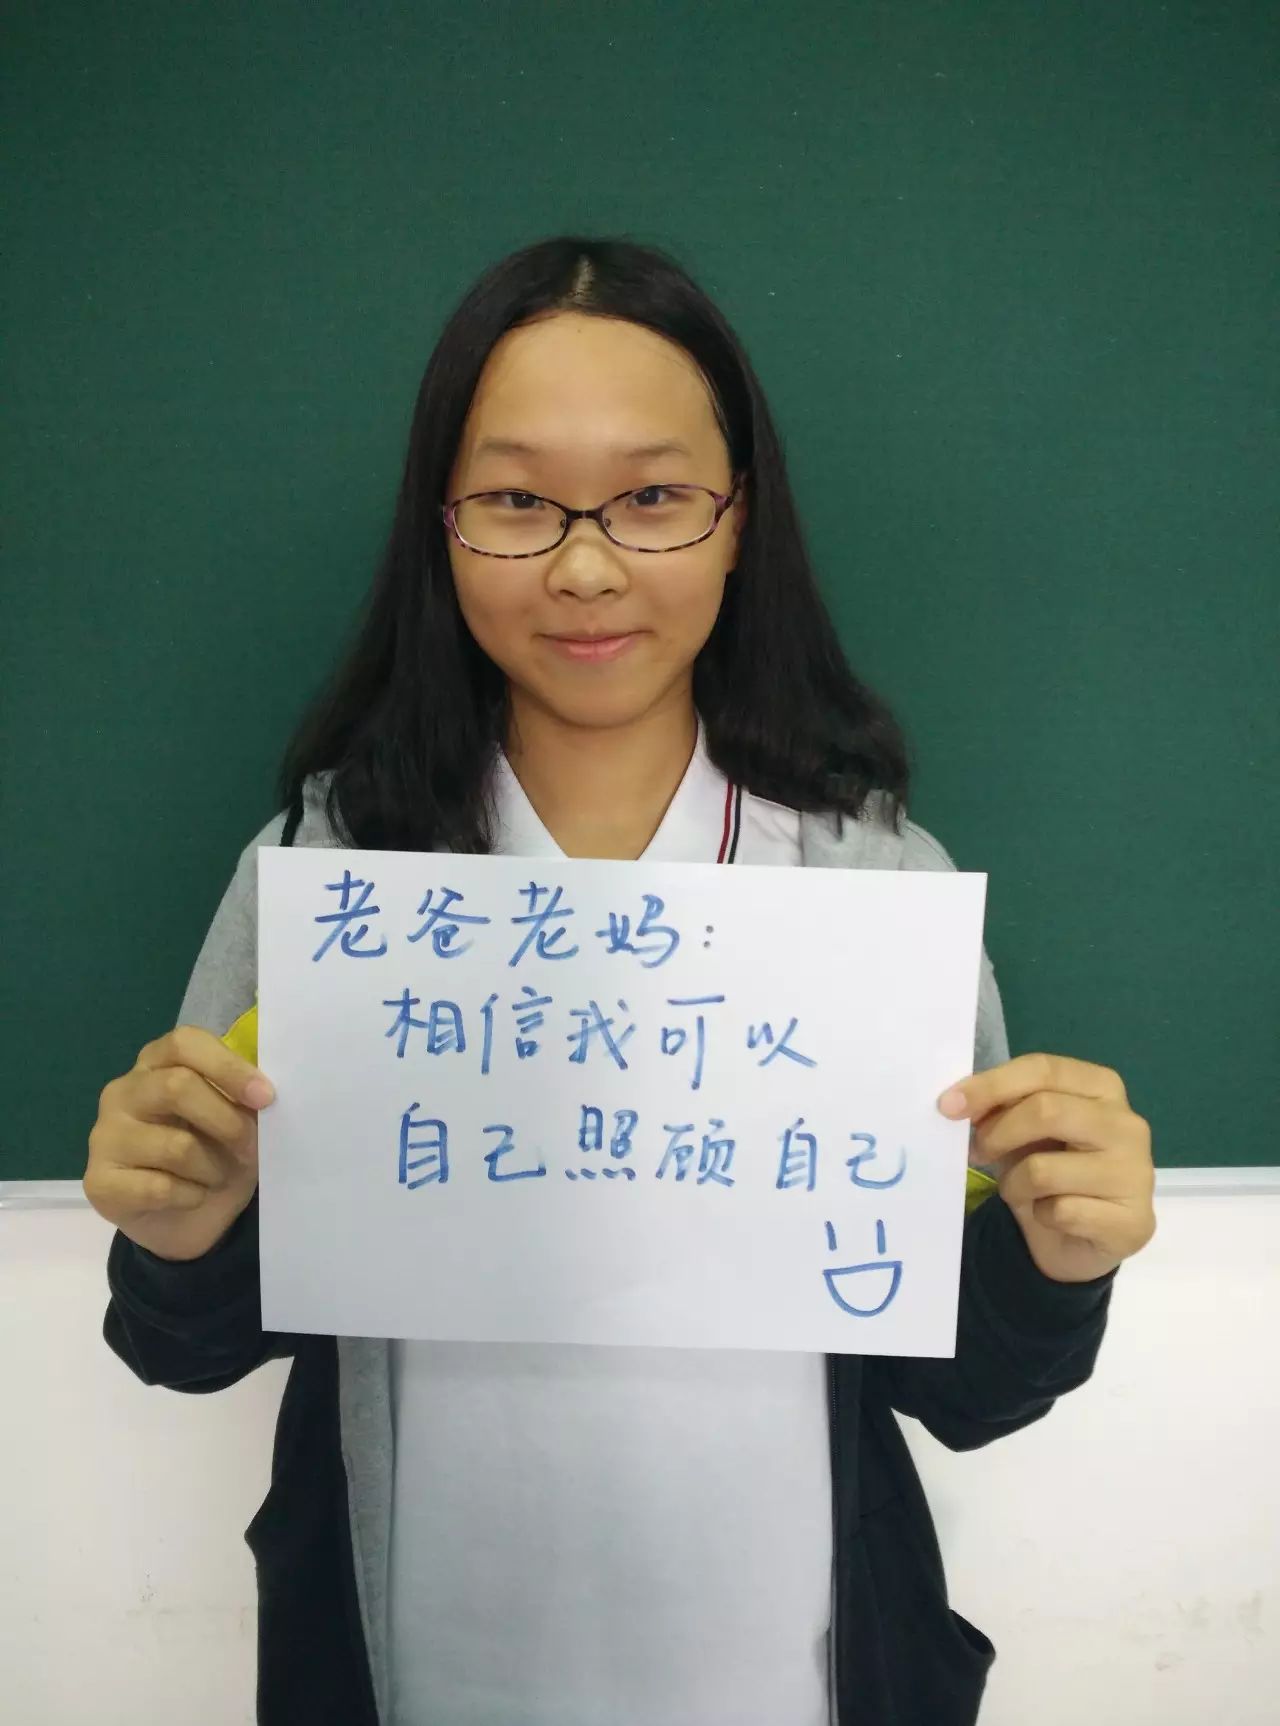 老爸老妈：
相信我可以
自己照顾自己